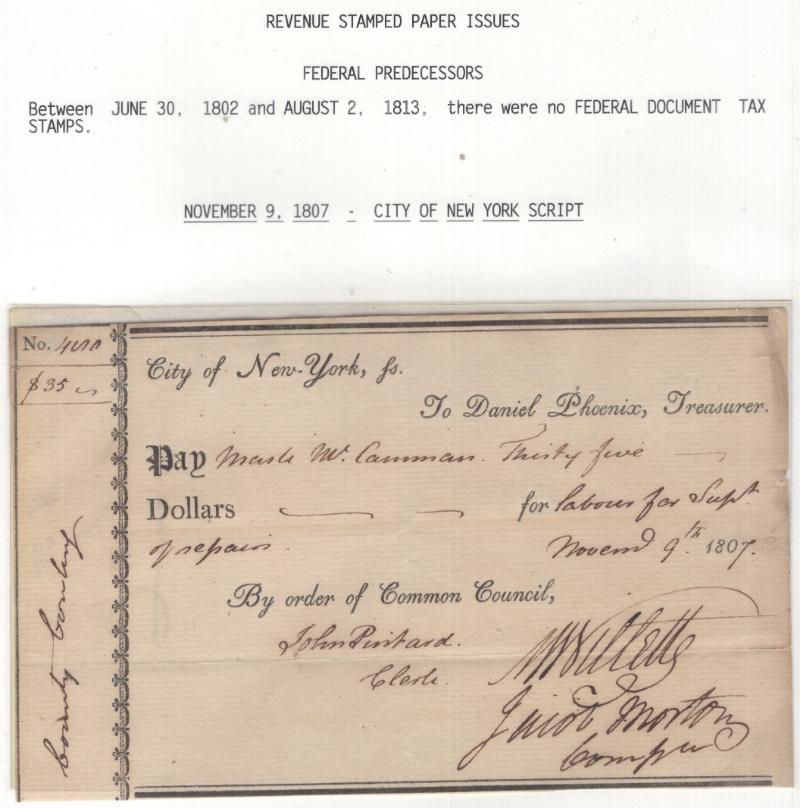 REVENUE STAMPED PAPER ISSUES
FEDERAL PREDECESSORS
Between JUNE 30, 1802 and AUGUST 2, 1813, there were no FEDERAL DOCUMENT TAX
STAMPS.
NOVEMBER 9, 1807 - CITY OF NEW YORK SCRIPT
No.
$35
City of New-York, ſs.
To Daniel Phoenix, Treasurer.
Pay Mark McCamman. Thirty five
Dollars for labour for Supt
of repairs.
Novem 9th. 1807.
By order of Common Council,
John Pintard.
Clerk.
M Willett
Jacob Morton
Comp
County